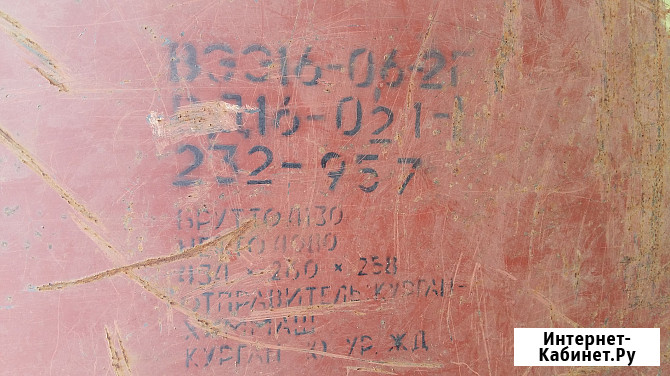 ВЭЭ16-06-2Г
16-021-1
232-957
БРУТТО 4130
НЕТТО
434 × 260 × 258
ОТПРАВИТЕЛЬ: КУРГАН-
ХИММАШ
КУРГАН Ю. УР. ЖД
Интернет-
Кабинет.Ру